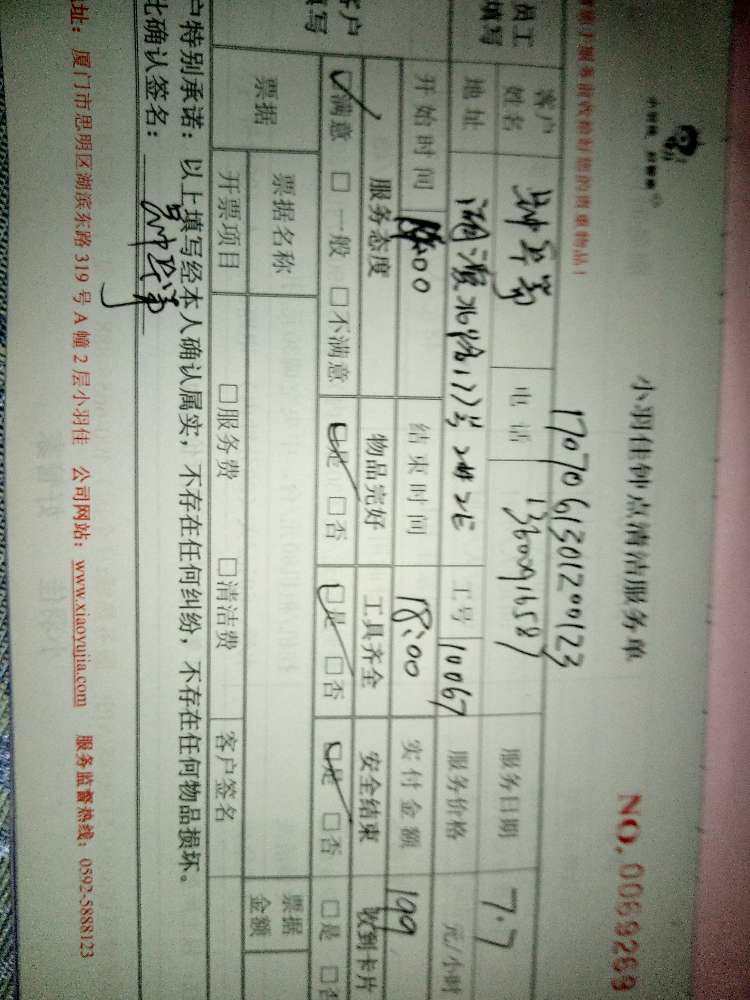 小羽佳钟点清洁服务单
NO. 0069269
务前收检好您的贵重物品！
1707061301200123
员工
填写
客户
姓名
电话
服务日期
7.7
地址
工号
10067
服务价格
元/小时
开始时间
结束时间
18:00
实付金额
199
客户
填写
服务态度
物品完好
工具齐全
安全结束
收到卡片
☑满意 □一般 □不满意
☑是 □否
☑是 □否
☑是 □否
□是 □否
票据
票据名称
票据
金额
开票项目
□服务费 □清洁费
客户签名
户特别承诺：以上填写经本人确认属实，不存在任何纠纷，不存在任何物品损坏。
此确认签名：
址：厦门市思明区湖滨东路 319 号 A 幢 2 层小羽佳 公司网站：www.xiaoyujia.com 服务监督热线：0592-5888123